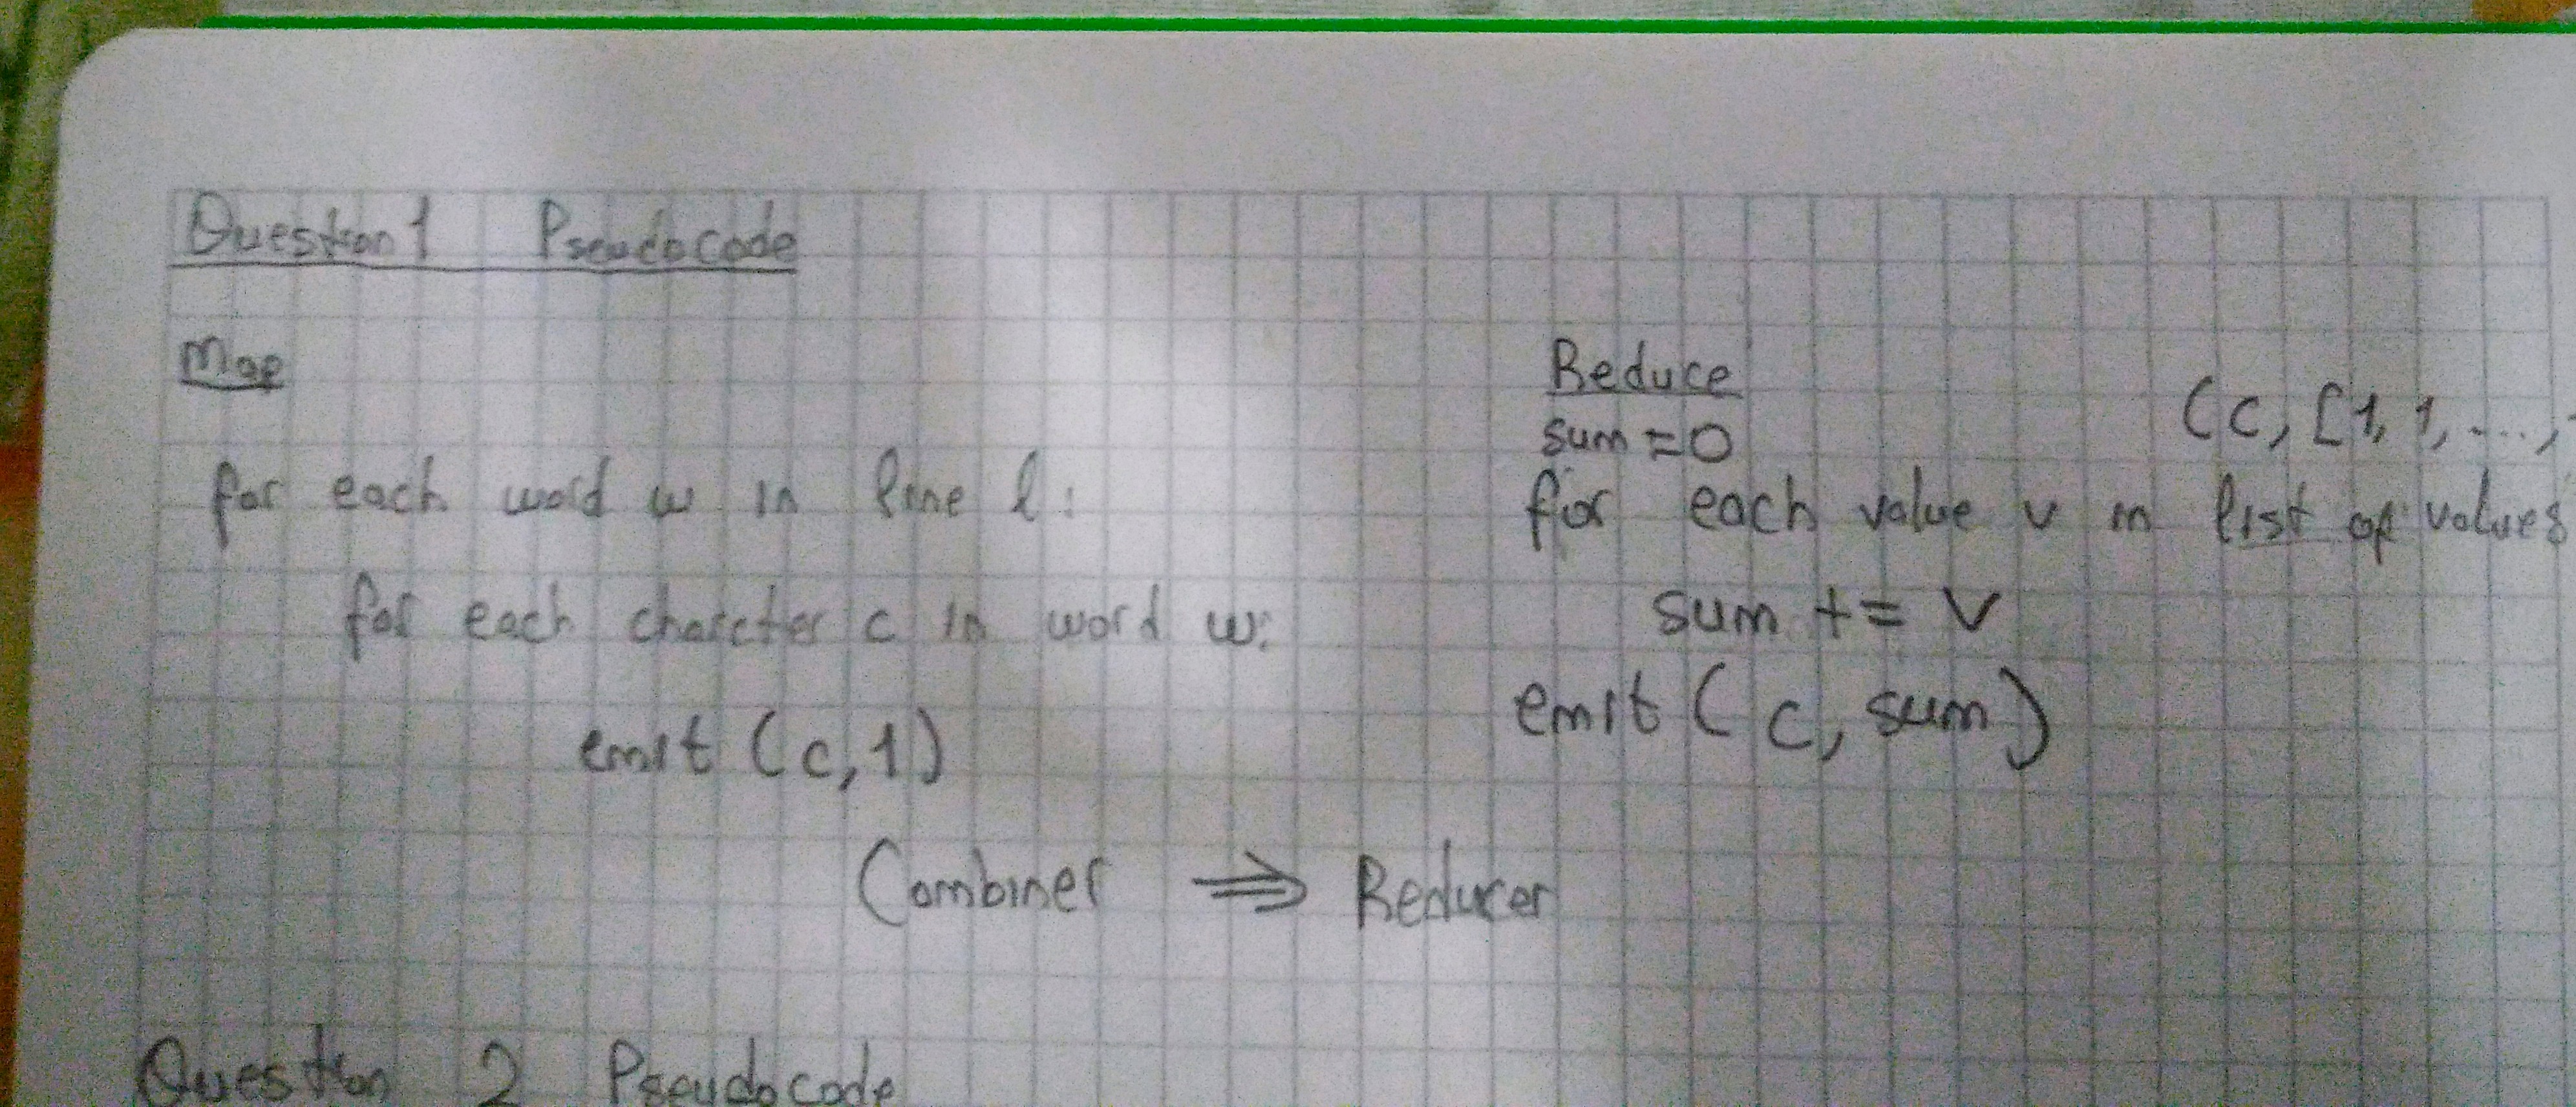 Question 1 Pseudocode
Map
for each word w in line l:
for each charcter c in word w:
emit (c,1)
Reduce
(c, [1, 1, ....,
sum = 0
for each value v in list of values
sum += v
emit (c, sum)
Combiner ⇒ Reducer
Question 2 Pseudocode